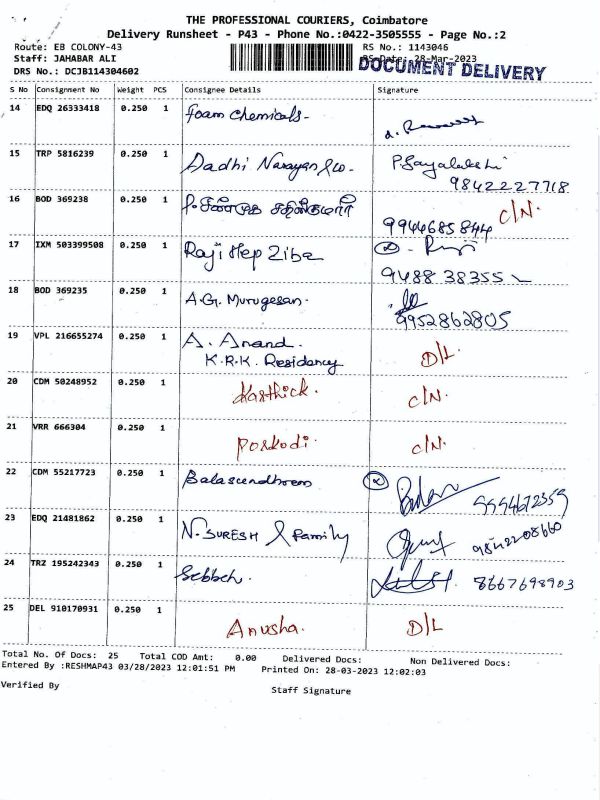 THE PROFESSIONAL COURIERS, Coimbatore
Delivery Runsheet - P43 - Phone No.:0422-3505555 - Page No.:2
Route: EB COLONY-43
RS No.: 1143046
Staff: JAHABAR ALI
RS Date: 28-Mar-2023
DRS No.: DCJB114304602
DOCUMENT DELIVERY
S No Consignment No Weight PCS Consignee Details Signature
14 EDQ 26333418 0.250 1 Foam Chemicals-
15 TRP 5816239 0.250 1 Dadhi Narayan & co-
9842227718
16 BOD 369238 0.250 1
9944685844 C/N.
17 IXM 503399508 0.250 1
9488 38355
18 BOD 369235 0.250 1 A.G. Murugesan.
9952862805
19 VPL 216655274 0.250 1 A. Anand. D/L
K.R.K. Residency
20 CDM 50248952 0.250 1 Karthick. C/N.
21 VRR 666304 0.250 1 Porkodi. C/N.
22 CDM 55217723 0.250 1
9994672359
23 EDQ 21481862 0.250 1 N. SURESH & Family
9842208660
24 TRZ 195242343 0.250 1 8667698903
25 DEL 910170931 0.250 1 Anusha. D/L
Total No. Of Docs: 25 Total COD Amt: 0.00 Delivered Docs: Non Delivered Docs:
Entered By :RESHMAP43 03/28/2023 12:01:51 PM Printed On: 28-03-2023 12:02:03
Verified By
Staff Signature